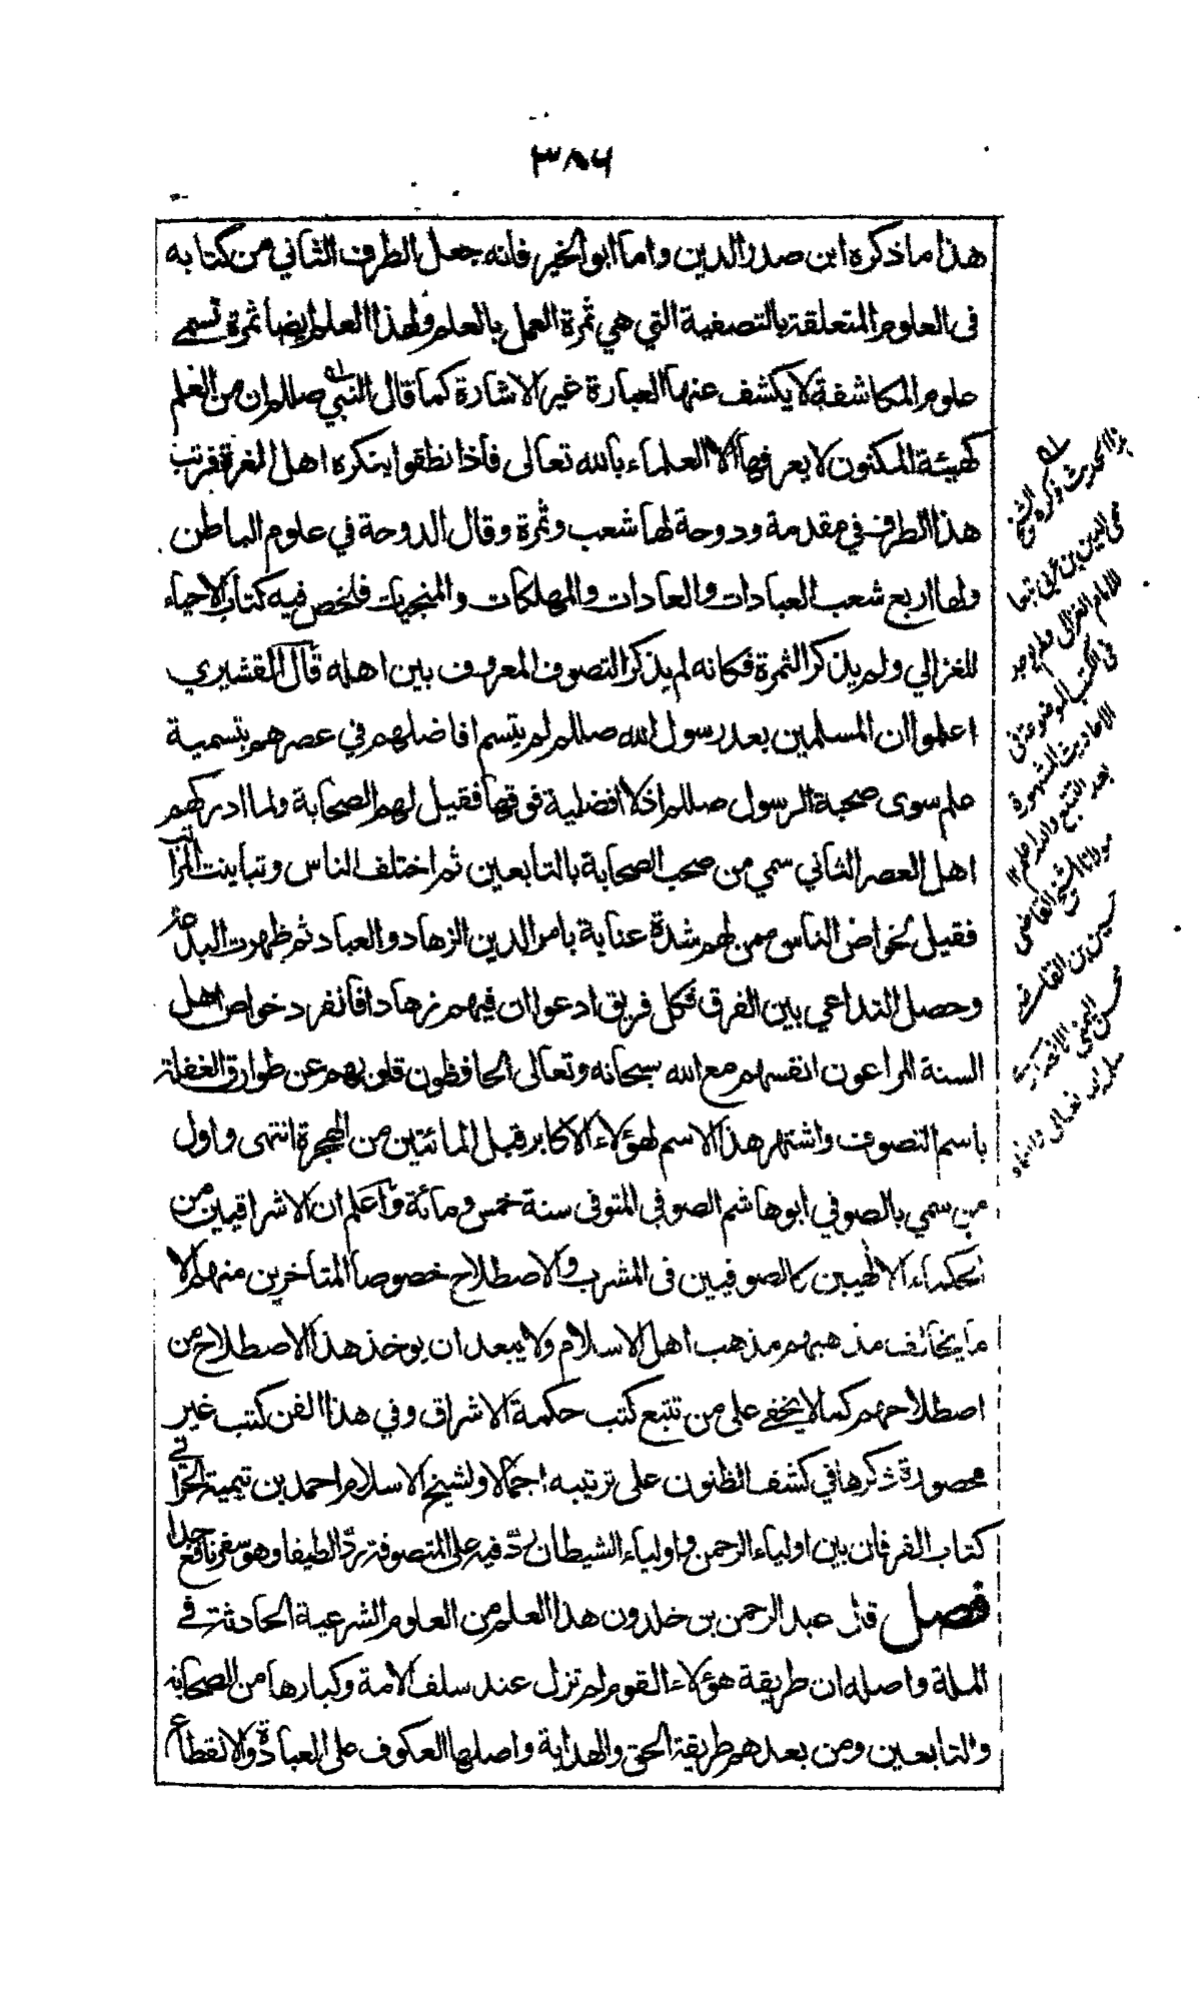 ٣٨٦
هذا ما ذكره ابن صدر الدين واما ابو الخير فانه جعل الطرف الثاني من كتابه
فى العلوم المتعلقة بالتصفية التي هي ثمرة العمل بالعلم ولهذا العلم ايضا ثمرة تسمى
علوم المكاشفة لا يكشف عنها العبارة غير الاشارة كما قال النبي صللم ان من العلم
كهيئة المكنون لا يعرفها الا العلماء بالله تعالى فاذا نطقوا ينكره اهل الغرة فرتب
هذا الطرف في مقدمة ودوحة لها شعب وثمرة وقال الدوحة في علوم الباطن
ولها اربع شعب العبادات والعادات والمهلكات والمنجيات فلخص فيه كتاب الاحياء
للغزالي ولم يذكر الثمرة فكانه لم يذكر التصوف المعروف بين اهله قال القشيري
اعلموا ان المسلمين بعد رسول الله صللم لم يتسم افاضلهم في عصرهم بتسمية
علم سوى صحبة الرسول صللم اذ لا افضلية فوقها فقيل لهم الصحابة ولما ادركهم
اهل العصر الثاني سمي من صحب الصحابة بالتابعين ثم اختلف الناس وتباينت المراتب
فقيل لخواص الناس ممن لهم شدة عناية بامر الدين الزهاد والعباد ثم ظهرت البدعة
وحصل التداعي بين الفرق فكل فريق ادعوا ان فيهم زهادا فانفرد خواص اهل
السنة المراعون انفسهم مع الله سبحانه وتعالى الحافظون قلوبهم عن طوارق الغفلة
باسم التصوف واشتهر هذا الاسم لهؤلاء الاكابر قبل المائتين من الهجرة انتهى واول
من سمي بالصوفي ابو هاشم الصوفي المتوفى سنة خمس ومائة واعلم ان الاشراقيين من
الحكماء الالهيين كالصوفيين فى المشرب والاصطلاح خصوصا المتاخرين منهم الا
ما يخالف مذهبهم مذهب اهل الاسلام ولا يبعد ان يوخذ هذا الاصطلاح من
اصطلاحهم كما لا يخفى على من تتبع كتب حكمة الاشراق وفي هذا الفن كتب غير
محصورة ذكرها في كشف الظنون على ترتيبه اجمالا ولشيخ الاسلام احمد بن تيمية الحراني
كتاب الفرقان بين اولياء الرحمن واولياء الشيطان ردّ فيه على المتصوفة ردّا لطيفا وهو سفر نافع جدا
فصل قال عبد الرحمن بن خلدون هذا العلم من العلوم الشرعية الحادثة في
الملة واصله ان طريقة هؤلاء القوم لم تزل عند سلف الامة وكبارها من الصحابة
والتابعين ومن بعدهم طريقة الحق والهداية واصلها العكوف على العبادة والانقطاع
هذا الحديث ذكره الشيخ
محى الدين بن عربى تبعا
للامام الغزالى ولم يوجد
فى الكتب الموضوعة فى
الاحاديث المشهورة
بعد التتبع والله اعلم
مولانا الشيخ القاضى
حسين بن
محسن اليمني الانصارى
سلمه الله تعالى